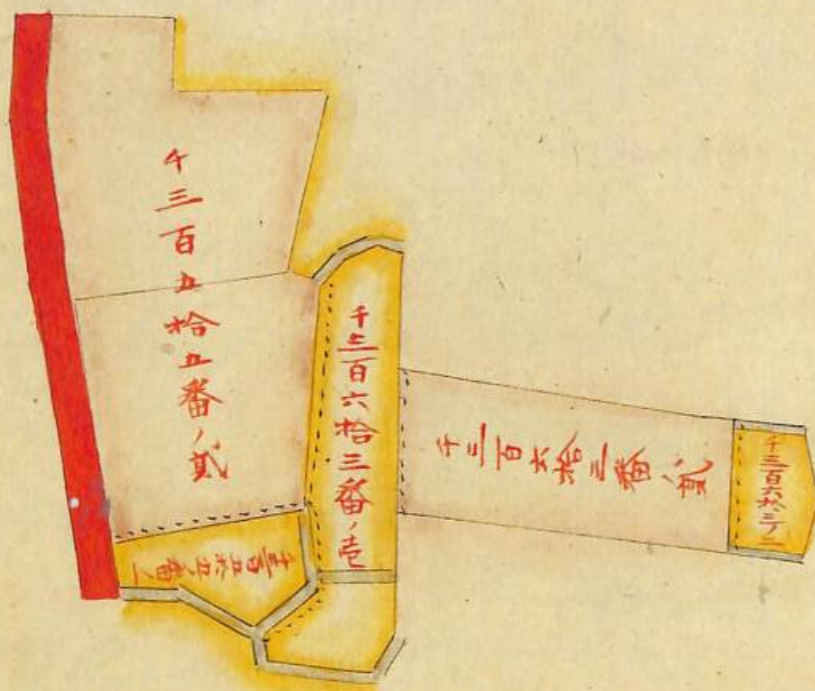 千三百五拾五番ノ貳
千三百六拾三番ノ壱
千三百六拾三番貳
千三百六拾三ノ二
千三百五拾五番ノ一